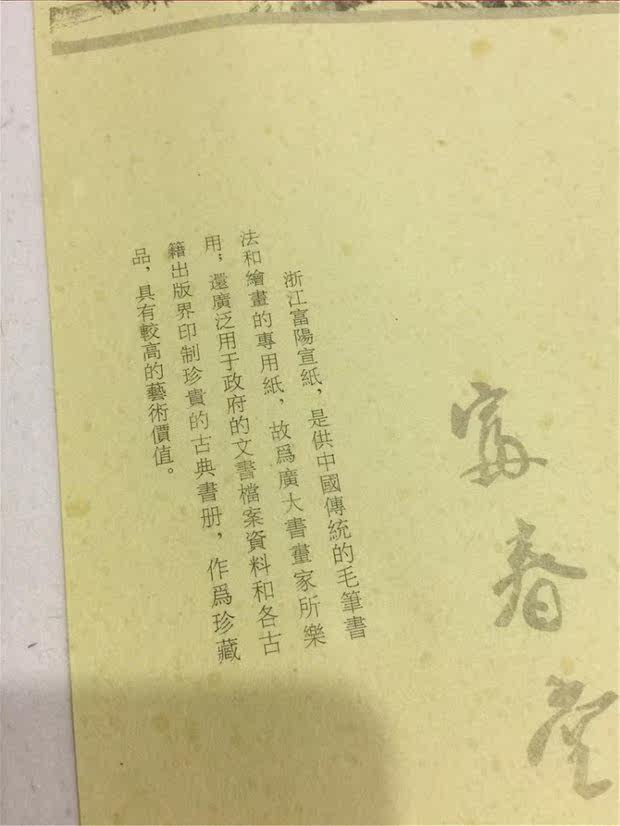 富春堂
浙江富陽宣紙，是供中國傳統的毛筆書
法和繪畫的專用紙，故爲廣大書畫家所樂
用；還廣泛用于政府的文書檔案資料和各古
籍出版界印制珍貴的古典書册，作爲珍藏
品，具有較高的藝術價值。